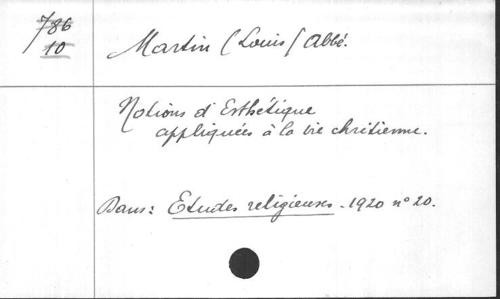 786
10
Martin (Louis) Abbé.
Notions d'Esthétique
appliquées à la vie chrétienne.
Dans: Etudes religieuses. 1920 n° 20.